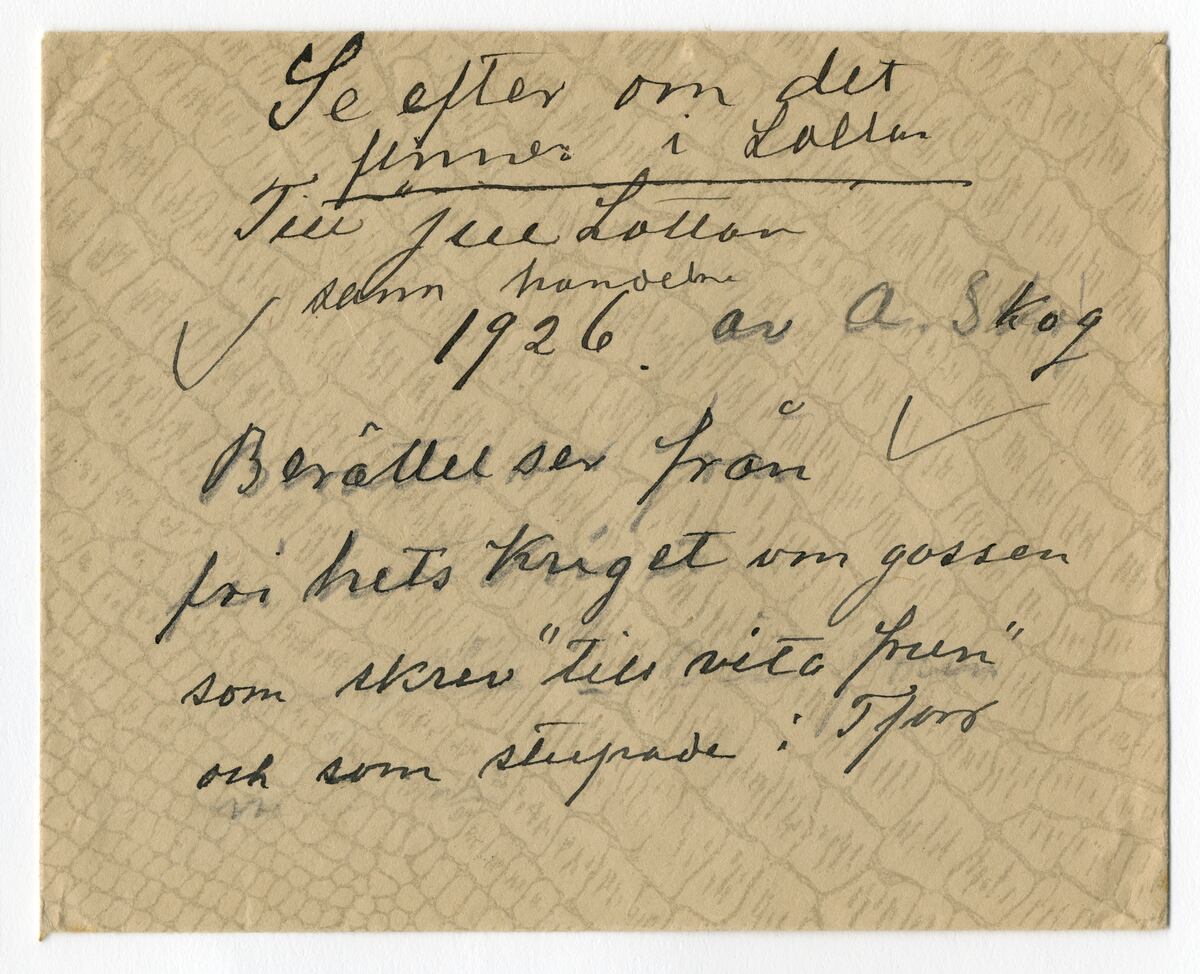 Se efter om det
finnes i Lottan
Till Jul Lottan
sann handelse
1926. av A. Skog
Berättelser från
frihets Kriget om gossen
som skrev "till vita frun"
och som stupade i